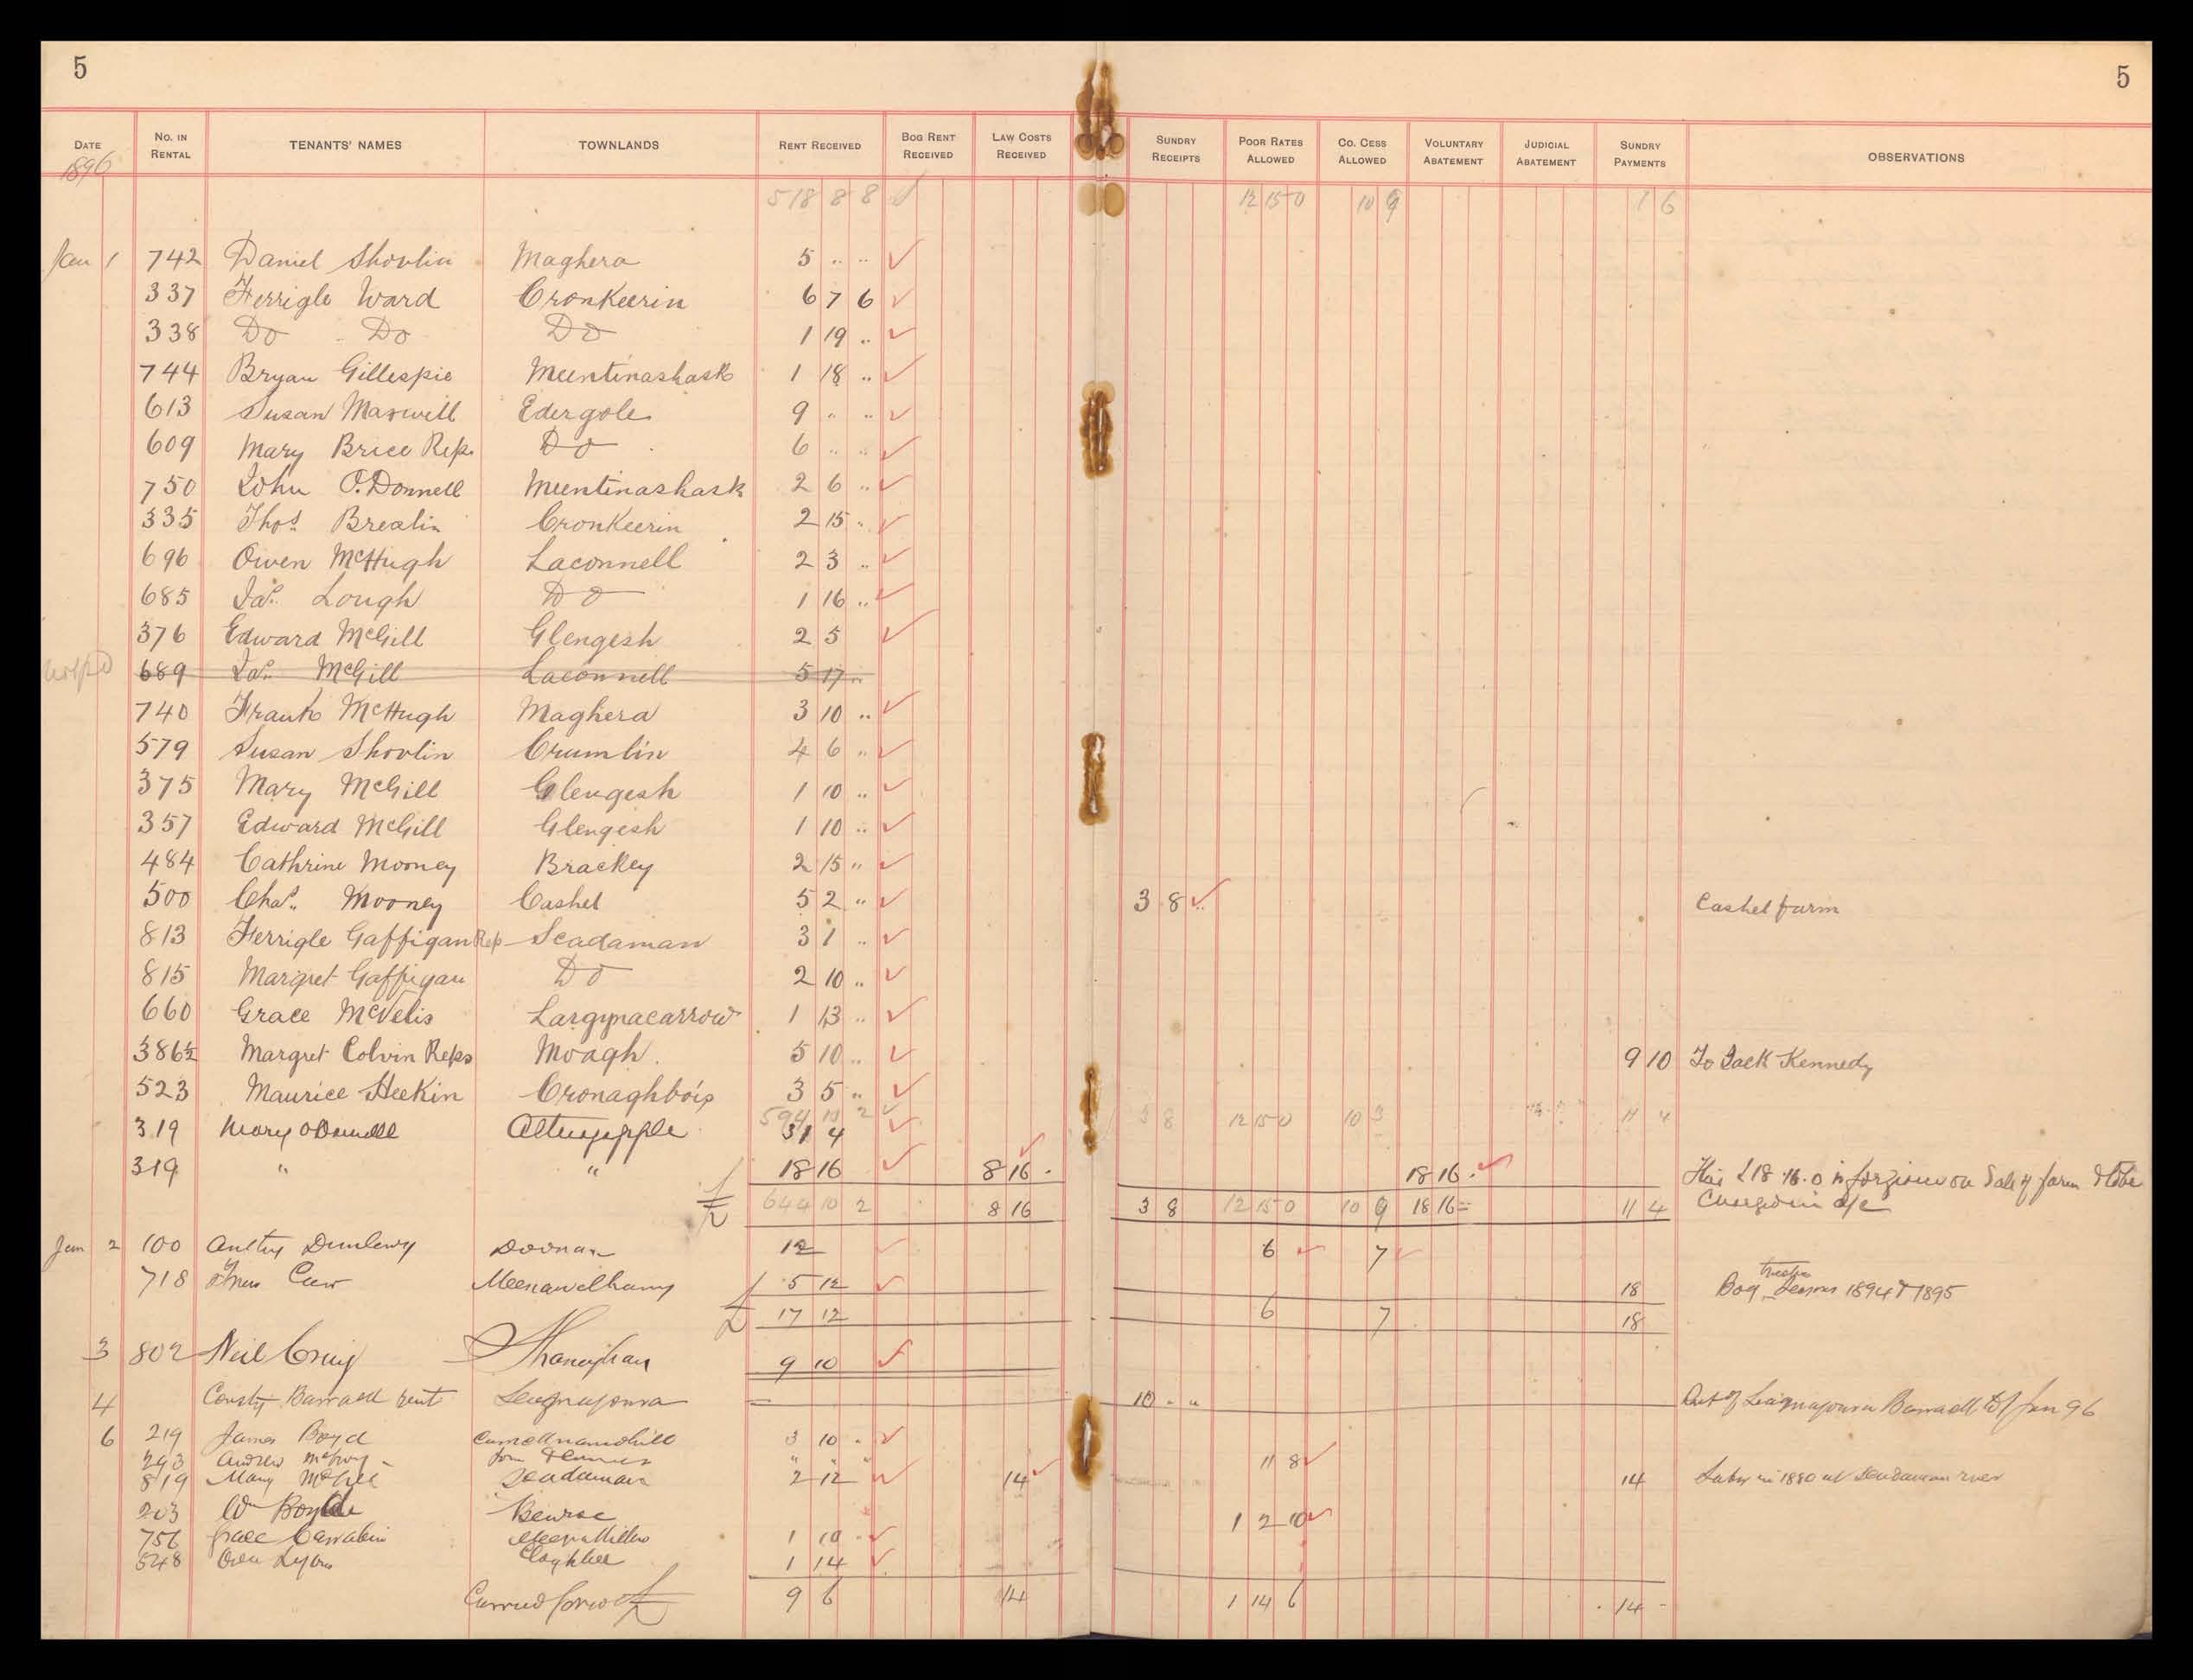 5 5
DATE No. IN RENTAL TENANTS' NAMES TOWNLANDS RENT RECEIVED BOG RENT RECEIVED LAW COSTS RECEIVED SUNDRY RECEIPTS POOR RATES ALLOWED CO. CESS ALLOWED VOLUNTARY ABATEMENT JUDICIAL ABATEMENT SUNDRY PAYMENTS OBSERVATIONS
1896
518 8 8 12 15 0 10 9 1 6
Jan 1 742 Daniel Shovlin Maghera 5 .. ..
337 Ferrigle Ward Cronkeerin 6 7 6
338 Do Do Do 1 19 ..
744 Bryan Gillespie Meentinashask 1 18 ..
613 Susan Maxwell Edergole 9 .. ..
609 Mary Brice Reps Do 6 .. ..
750 John O'Donnell Meentinashask 2 6 ..
335 Thos. Breslin Cronkeerin 2 15 ..
696 Owen McHugh Laconnell 2 3 ..
685 Jas. Lough Do 1 16 ..
376 Edward McGill Glengesh 2 5
689 Jas. McGill Laconnell 5 17 ..
740 Frank McHugh Maghera 3 10 ..
579 Susan Shovlin Crumlin 4 6 ..
375 Mary McGill Glengesh 1 10 ..
357 Edward McGill Glengesh 1 10 ..
484 Cathrine Mooney Brackey 2 15 ..
500 Chas. Mooney Cashel 5 2 .. 3 8 .. Cashel farm
813 Ferrigle Gaffigan Rep Scadaman 3 1 ..
815 Margret Gaffigan Do 2 10 ..
660 Grace McNelis Largynacarrow 1 13 ..
386½ Margret Colvin Reps Moagh. 5 10 .. 9 10 To Jack Kennedy
523 Maurice Heekin Cronaghbois 3 5 ..
594 10 2 3 8 12 15 0 10 9 11 4
319 Mary O Donnell 31 4
319 " " 18 16 8 16 . 18 16 . £18.16.0 is forgiven on Sale of farm
644 10 2 8 16 3 8 12 15 0 10 9 18 16 = 11 4
Jan 2 100 Doonan 12 6 7
718 5 12 18 Bog 1894 & 1895
£ 17 12 6 7 18
3 802 Neil Craig Shanaghan 9 10
4 Barrack rent 10 . .. Barrack to Jan 96
6 219 James Boyd 3 10 .
293 Andrew " " " 11 8
819 Mary McGill Scadaman 2 12 14 14 in 1880 at Scadaman river
203 Wm 1 2 10
756 Grace 1 10 .
548 Owen Lyons 1 14
Carried forwd £ 9 6 14 1 14 6 14 -